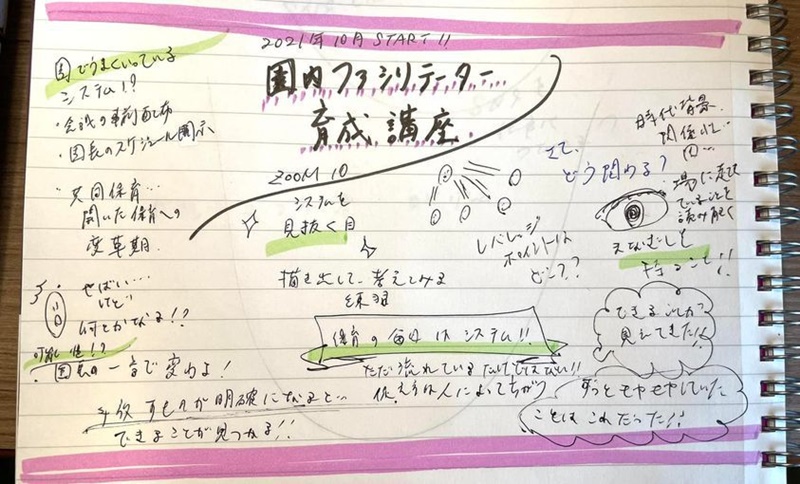 2021年10月START!!
園内ファシリテーター
育成講座
園でうまくいっている
システム!?
・会議の事前配布
・園長のスケジュール開示
共同保育…
開いた保育への
変革期
ZOOM 10
システムを
見抜く目
さて、
どう関わる?
レバレッジ
ポイントは
どこ??
時代背景
関係性
場に
ていることを
読み解く
描き出して、考えてみる
練習
やばい…
けど
何とかなる!?
可能性!?
・園長の一言で変わる!
保育の毎日はシステム!!
ただ流れているだけではない!!
捉え方は人によってちがう
できることが
見えてきた!!
ずっとモヤモヤしていた
ことはこれだった!!
が明確になると…
できることが見つかる!!